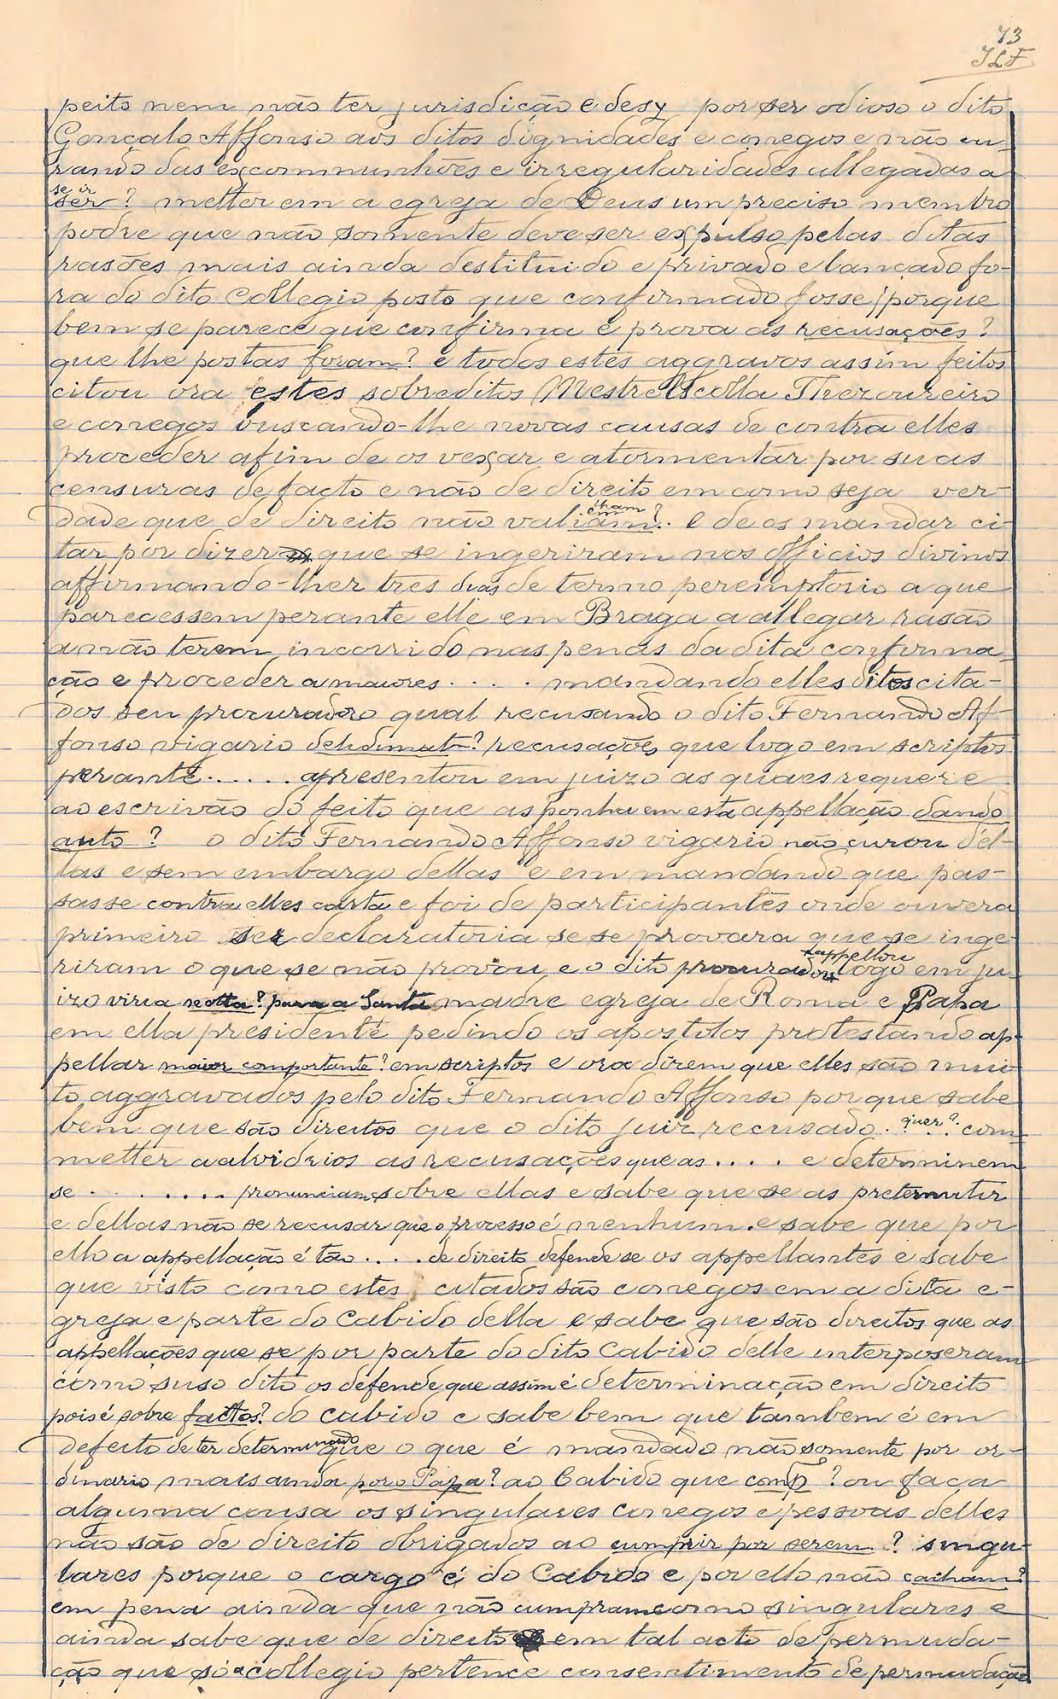 73
JLF
peito nem não ter jurisdição e desy por ser odioso o dito
Gonçalo Affonso aos ditos dignidades e conegos e não cu-
rando das excommunhões e irregularidades allegadas a
se ir
ser? metter em a egreja de Deus um preciso membro
podre que não somente deve ser expulso pelas ditas
rasões mais ainda destituido e privado e lançado fo-
ra do dito Collegio posto que confirmado fosse porque
bem se parece que confirma e prova as recusações?
que lhe postas foram? e todos estes aggravos assim feitos
citou ora estes sobreditos Mestre Escolla Thezoureiro
e conegos buscando-lhe novas causas de contra elles
proceder afim de os vexar e atormentar por suas
censuras de facto e não de direito em como seja ver-
dade que de direito não valiam? e de os mandar ci-
tar por dizer que se ingeriram nos officios divinos
affirmando-lher tres dias de termo peremptorio a que
parecessem perante elle em Braga a allegar rasão
a não terem incorrido nas penas da dita confirma-
ção e proceder a maiores . . . . mandando elles ditos cita-
dos seu procurador o qual recusando o dito Fernando Af-
fonso vigario recusações que logo em scriptos
perante . . . . . . apresentou em juizo as quaes requere
ao escrivão do feito que as ponha em esta appellação dando
auto? o dito Fernando Affonso vigario não curou del-
las e sem embargo dellas e em mandando que pas-
sasse contra elles carta e foi de participantes onde ouvera
primeiro ser declaratoria se se provara que se inge-
riram o que se não provou, e o dito procurador appellou logo em ju-
izo viva para a Santa madre egreja de Roma e Papa
em ella presidente pedindo os apostolos protestando ap-
pellar maior comportante? em scriptos e ora direm que elles são mui-
to aggravados pelo dito Fernando Affonso porque sabe
bem que são direitos que o dito juiz recusado . quer? com-
metter a alvidrios as recusações que as . . . . e determinem
se . . . . . . . . pronunciam sobre ellas e sabe que se as pretermitir
e dellas não se recusar que o processo é nenhum . e sabe que por
ello a appellação é tão . . . . de direito defende se os appellantes e sabe
que visto como estes citados são conegos em a dita e-
greja e parte do Cabido della e sabe que são direitos que as
appellações que se por parte do dito Cabido delle interposeram
como suso dito os defende que assim é determinação em direito
pois é sobre factos? do Cabido e sabe bem que tambem é em
defeito de ter determinado que o que é mandado não somente por or-
dinario mais ainda por o Papa? ao Cabido que ? ou faça
alguma cousa os singulares conegos e pessoas delles
não são de direito obrigados ao cumprir por serem? singu-
lares porque o cargo é do Cabido e por ello não cacham?
em pena ainda que não cumpram como singulares e
ainda sabe que de direito em tal acto de permuda-
ção que só a collegio pertence consentimento de permudação